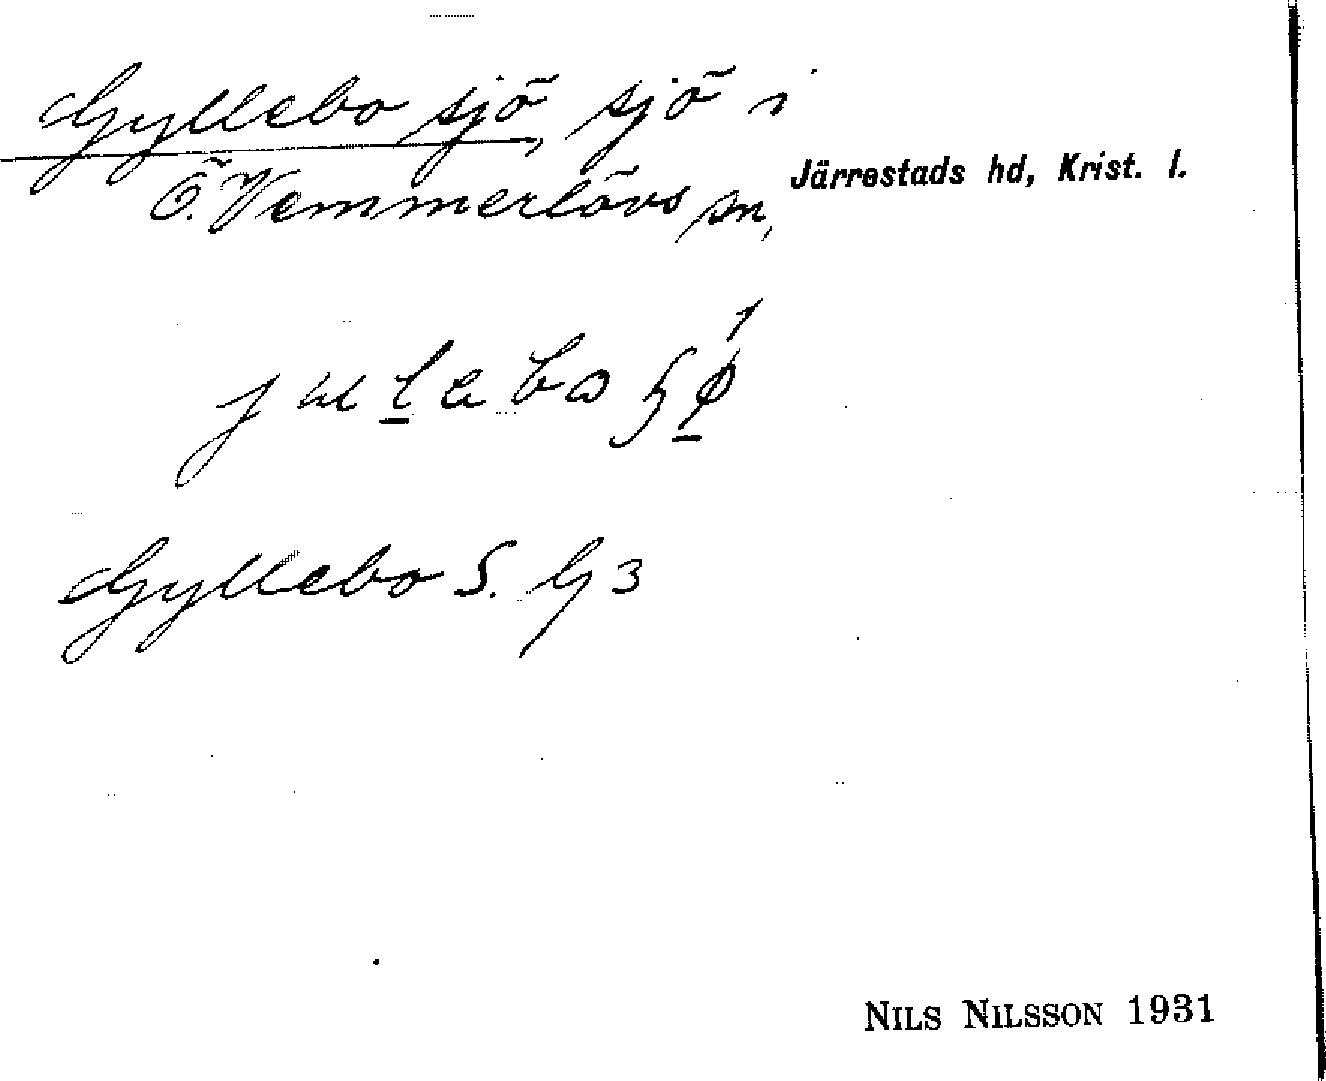 Gyllebo sjö, sjö i
Ö. Vemmerlövs sn, Järrestads hd, Krist. l.
Gyllebo S. G3
NILS NILSSON 1931